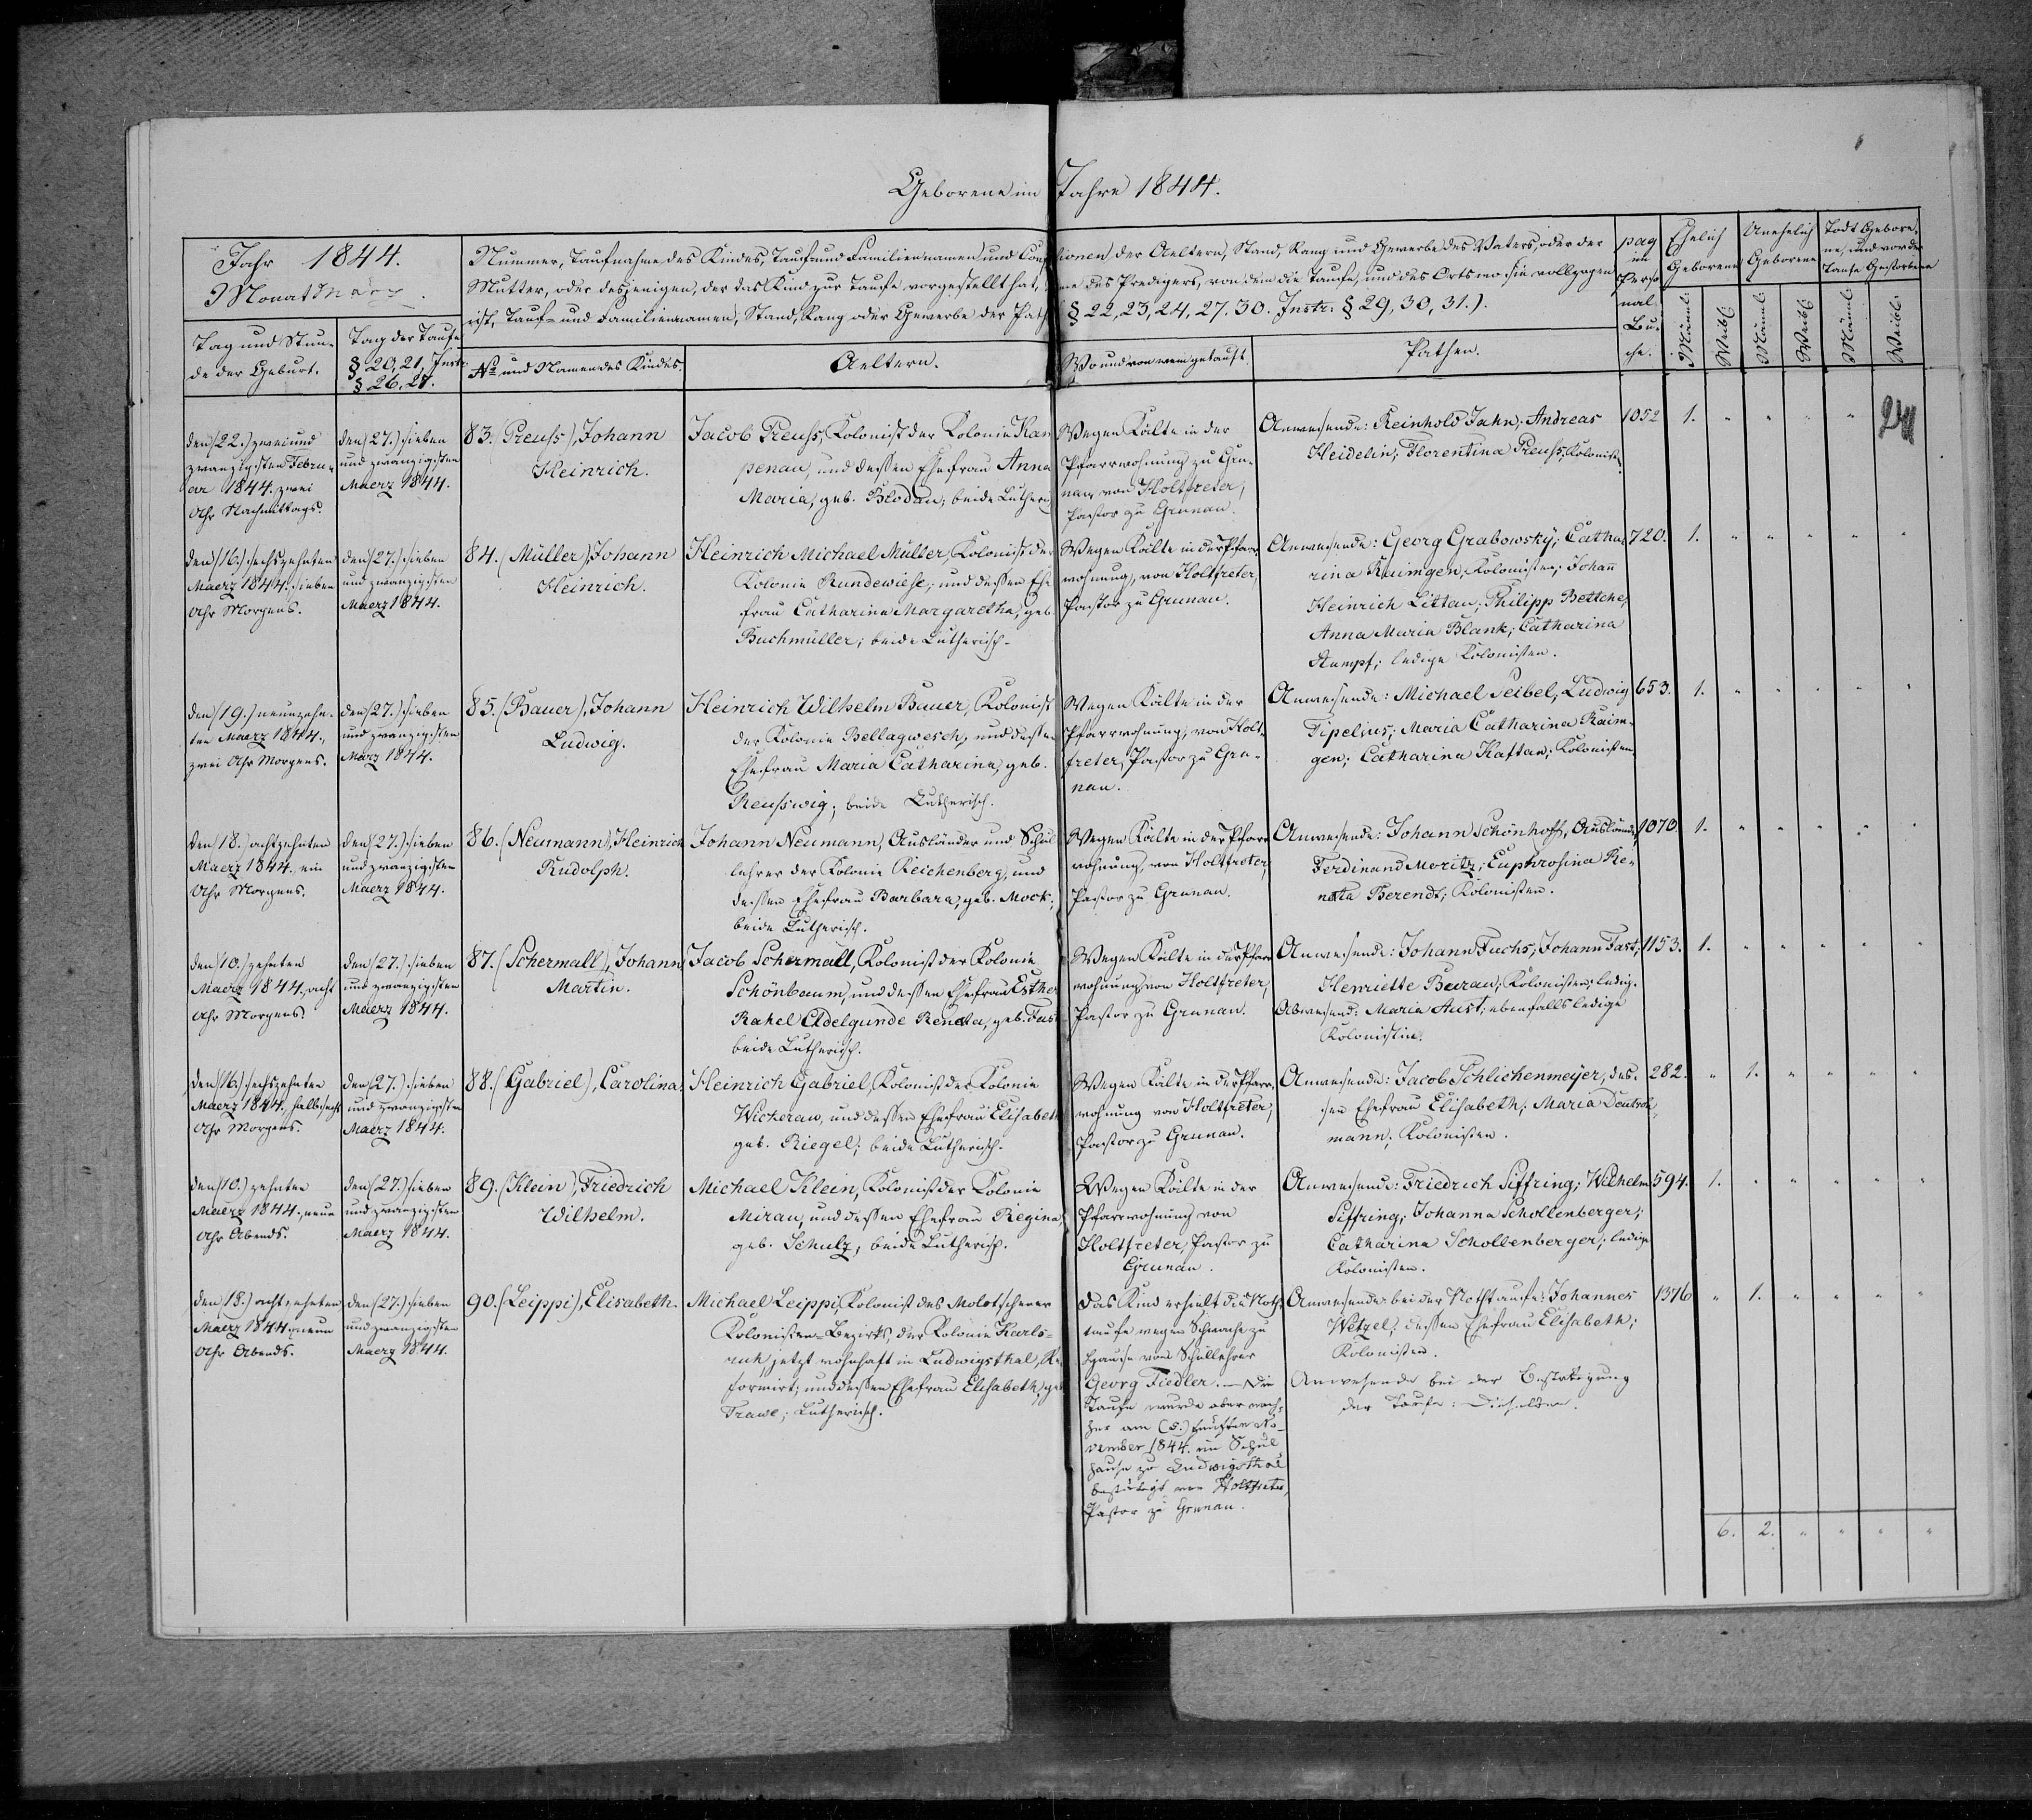 Geborene im Jahre 1844.
Jahr 1844.
Monat Maerz.
Tag und Stun-
de der Geburt.
Tag der Taufe
§ 20, 21, Instr.
§ 26, 27.
Nummer, Taufnahme des Kindes, Tauf- und Familiennamen und Confessionen der Aeltern, Stand, Rang und Gewerbe des Vaters, oder der
Mutter, oder desjenigen, der das Kind zur Taufe vorgestellt hat, des Predigers, von dem die Taufe, und des Orts wo sie vollzogen
ist, Tauf- und Familiennamen, Stand, Rang oder Gewerbe der Pathen § 22, 23, 24, 27. 30. Instr: § 29, 30, 31.).
No und Namen des Kindes.
Aeltern.
Wo und von wem getauft.
Pathen.
pag
im
Perso
nal-
Bu-
che.
Ehelich
Geborene
Unehelich
Geborene
Todt Gebore-
ne, und vor der
Taufe Gestorbene
Männl:
Weibl:
Männl:
Weibl:
Männl:
Weibl:
den (22.) zwei und
zwanzigsten Febru-
ar 1844. zwei
Uhr Nachmittags.
den (27.) sieben
und zwanzigsten
Maerz 1844.
83. (Preuss), Johann
Heinrich.
Jacob Preuss, Kolonist der Kolonie Kam
penau, und dessen Ehefrau Anna
Maria, geb. Blodau; beide Lutherisch
Wegen Kälte in der
Pfarrwohnung zu Gru-
nau, von Holtfreter,
Pastor zu Grunau.
Anwesende: Reinhold Jahn; Andreas
Heidelin; Florentina Preuss; Kolonisten.
1052 1. " " " "
den (16.) sechszehnten
Maerz 1844. sieben
Uhr Morgens.
den (27.) sieben
und zwanzigsten
Maerz 1844.
84. (Müller), Johann
Heinrich.
Heinrich Michael Müller, Kolonist der
Kolonie Rundewiese; und dessen Ehe
frau Catharina Margaretha, geb.
Buchmüller; beide Lutherisch.
Wegen Kälte in der Pfarr
wohnung, von Holtfreter,
Pastor zu Grunau.
Anwesende: Georg Grabowsky; Catha
rina Raimgen, Kolonisten; Johann
Heinrich Littau; Philipp Bettche;
Anna Maria Blank; Catharina
Stumpf; ledige Kolonisten.
720. 1. " " " " "
den (19.) neunzehn-
ten Maerz 1844.,
zwei Uhr Morgens.
den (27.) sieben
und zwanzigsten
März 1844.
85. (Bauer), Johann
Ludwig.
Heinrich Wilhelm Bauer, Kolonist
der Kolonie Bellagwesch, und dessen
Ehefrau Maria Catharina, geb.
Reusswig; beide Lutherisch.
Wegen Kälte in der
Pfarrwohnung, von Holt-
freter, Pastor zu Gru-
nau.
Anwesende: Michael Seibel; Ludwig
Tipelius; Maria Catharina Raim-
gen; Catharina Kaftan; Kolonisten.
653. 1. " " " " "
den (18.) achtzehnten
Maerz 1844., ein
Uhr Morgens.
den (27.) sieben
und zwanzigsten
Maerz 1844.
86. (Neumann), Heinrich
Rudolph.
Johann Neumann, Ausländer und Schul
lehrer der Kolonie Reichenberg, und
dessen Ehefrau Barbara, geb. Mock;
beide Lutherisch.
Wegen Kälte in der Pfarr
wohnung, von Holtfreter,
Pastor zu Grunau.
Anwesende: Johann Schönhoff, Ausländer;
Ferdinand Moritz; Euphrosina Re-
nata Berendt; Kolonisten.
1070. 1. " " " " "
den (10.) zehnten
Maerz 1844., acht
Uhr Morgens
den (27.) sieben
und zwanzigsten
Maerz 1844.
87. (Schermall), Johann
Martin.
Jacob Schermall, Kolonist der Kolonie
Schönbaum, und dessen Ehefrau Esther
Rahel Adelgunde Renata, geb. Fast
beide Lutherisch.
Wegen Kälte in der Pfarr
wohnung, von Holtfreter,
Pastor zu Grunau.
Anwesende: Johann Fuchs; Johann Fast;
Henriette Burau; Kolonisten; ledig.
Abwesend: Maria Aust; ebenfalls ledige
Kolonistin.
1153. 1. " " " " "
den (16.) sechszehnten
Maerz 1844., halb sechs
Uhr Morgens.
den (27.) sieben
und zwanzigsten
Maerz 1844.
88. (Gabriel), Carolina.
Heinrich Gabriel, Kolonist der Kolonie
Wickerau, und dessen Ehefrau Elisabeth
geb. Riegel; beide Lutherisch.
Wegen Kälte in der Pfarr-
wohnung von Holtfreter,
Pastor zu Grunau.
Anwesende: Jacob Schlichenmeyer, des-
sen Ehefrau Elisabeth; Maria Deutsch-
mann; Kolonisten.
282. " 1. " " " "
den (10.) zehnten
Maerz 1844., neun
Uhr Abends.
den (27.) sieben
und zwanzigsten
Maerz 1844.
89. (Klein), Friedrich
Wilhelm.
Michael Klein, Kolonist der Kolonie
Mirau, und dessen Ehefrau Regina,
geb. Schulz; beide Lutherisch.
Wegen Kälte in der
Pfarrwohnung von
Holtfreter, Pastor zu
Grunau.
Anwesende: Friedrich Siffring; Wilhelm
Siffring; Johanna Schollenberger;
Catharina Schollenberger; ledige
Kolonisten.
594. 1. " " " " "
den (18.) achtzehnten
Maerz 1844. neun
Uhr Abends.
den (27.) sieben
und zwanzigsten
Maerz 1844.
90. (Leippi), Elisabeth.
Michael Leippi, Kolonist des Molotschener
Kolonisten-Bezirks, der Kolonie Karls-
ruh, jetzt wohnhaft in Ludwigsthal, Re-
formirt; und dessen Ehefrau Elisabeth, geb
Trawe; Lutherisch.
Das Kind erhielt die Noth-
taufe wegen Schwache zu
Hause vom Schullehrer
Georg Fiedler. — Die
Taufe wurde aber nach-
her am (5.) fünften No-
vember 1844. im Schul
hause zu Ludwigsthal
bestätigt von Holtfreter,
Pastor zu Grunau.
Anwesende bei der Nothtaufe: Johannes
Wetzel; dessen Ehefrau Elisabeth;
Kolonisten.
Anwesende bei der Bestätigung
der Taufe: Dieselben.
1376 " 1. " " " "
6. 2. " " " "